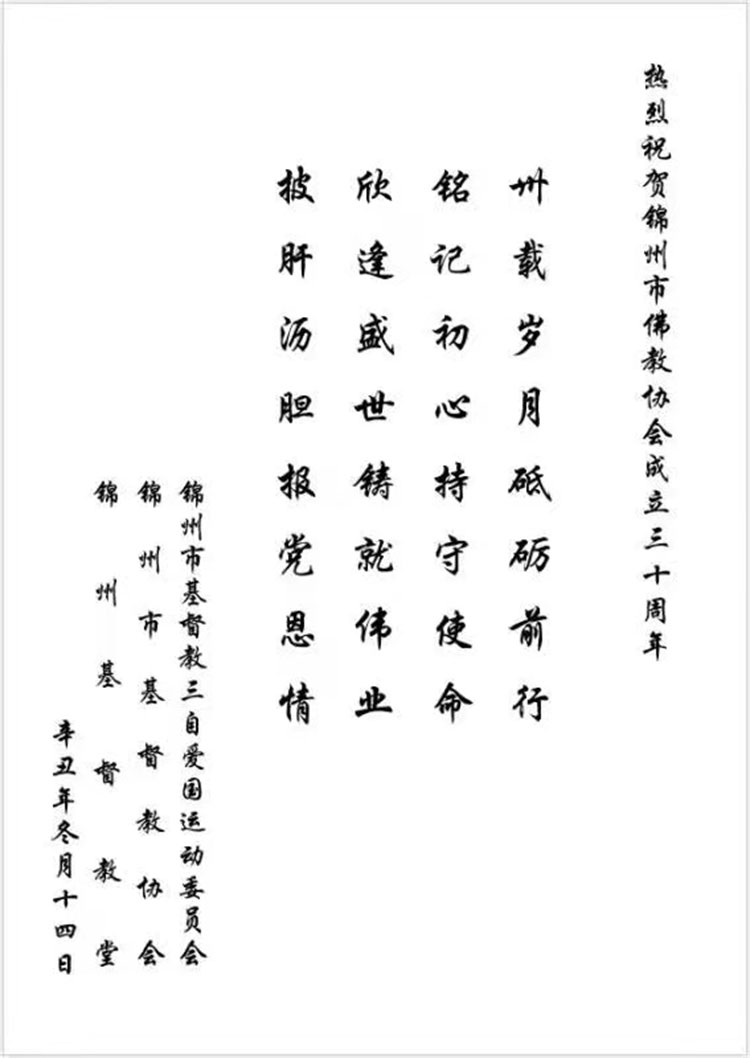 热烈祝贺锦州市佛教协会成立三十周年
卅载岁月砥砺前行
铭记初心持守使命
欣逢盛世铸就伟业
披肝沥胆报党恩情
锦州市基督教三自爱国运动委员会
锦州市基督教协会
锦州基督教堂
辛丑年冬月十四日